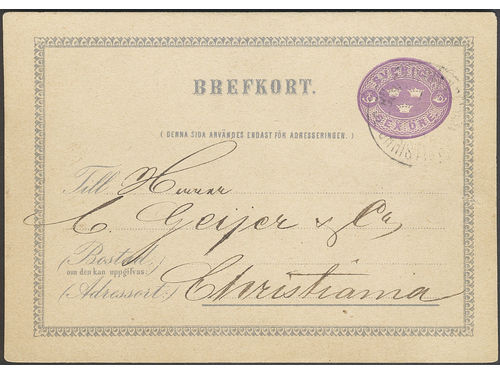 BREFKORT.
SVERIGE
SEX ÖRE
( DENNA SIDA ANVÄNDES ENDAST FÖR ADRESSERINGEN. )
Till Herrer
C. Geijer & Co
(Bostad:
om den kan uppgifvas:
(Adressort:) Christiania